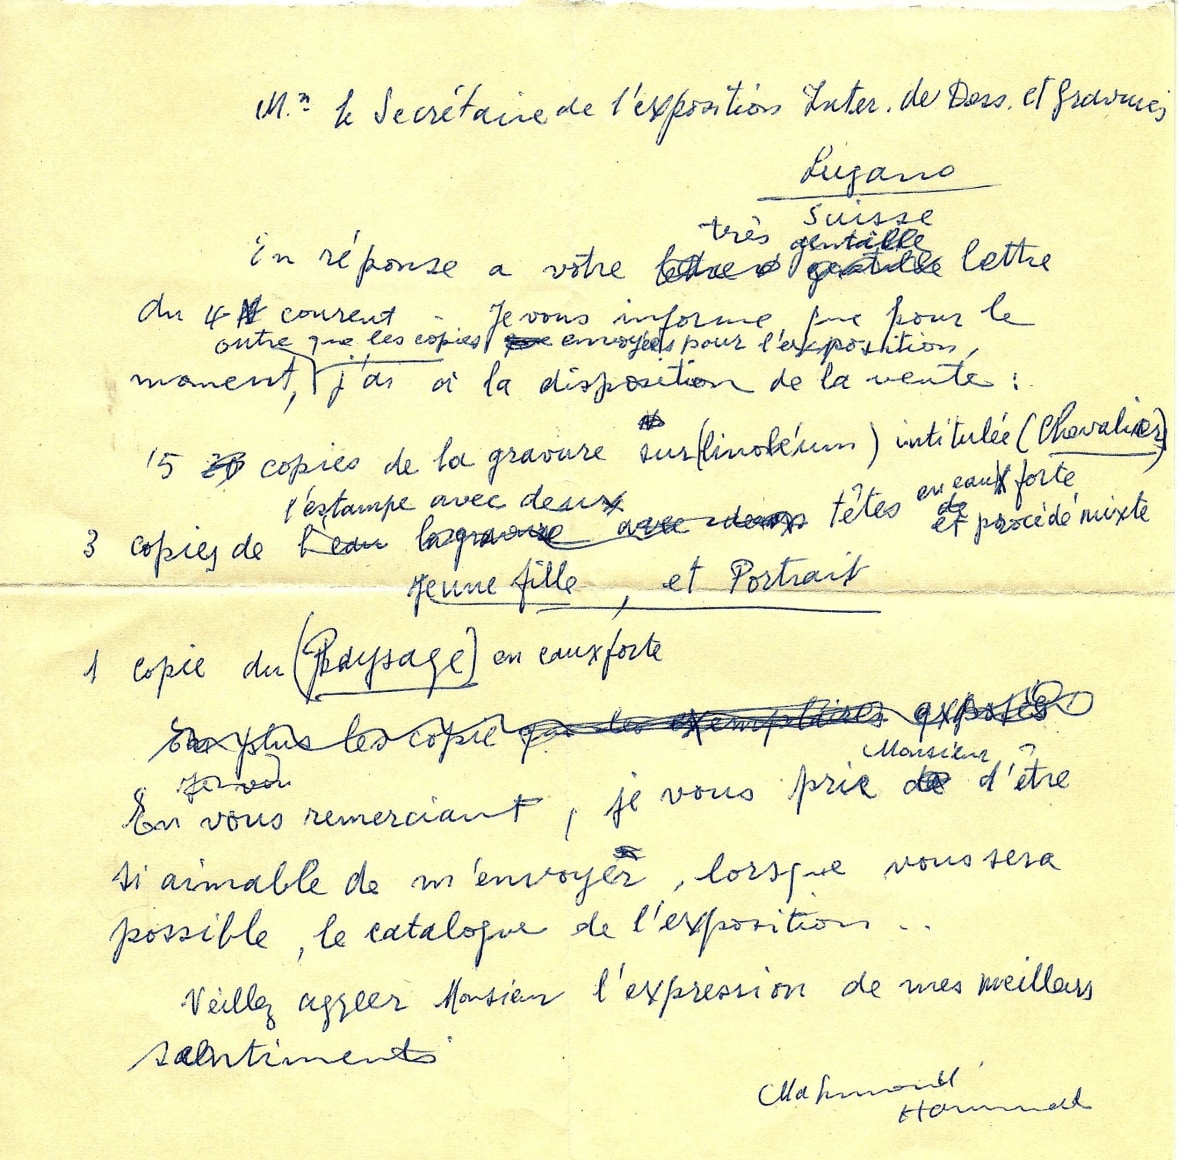 Mr le Secrétaire de l'exposition Inter. de Dess. et Gravures
Lugano
Suisse
très gentille
En réponse a votre lettre
du 4 courent - Je vous informe que pour le
outre que les copies envoyées pour l'exposition,
moment, j'ai à la disposition de la vente :
15 copies de la gravure sur (linoléum) intitulée (Chevalier)
l'éstampe avec deux en eaux forte
3 copies de têtes et procédé mixte
Jeune fille, et Portrait
1 copie du (Paysage) en eauxforte
En plus les copie que les exemplaires exposés
Je vou Monsieur
En vous remerciant, je vous prie d'être
si aimable de m'envoyer, lorsque vous sera
possible, le catalogue de l'exposition ..
Véillez agréer Monsieur l'expression de mes meillers
sentiments
Mahmoud
Hammad